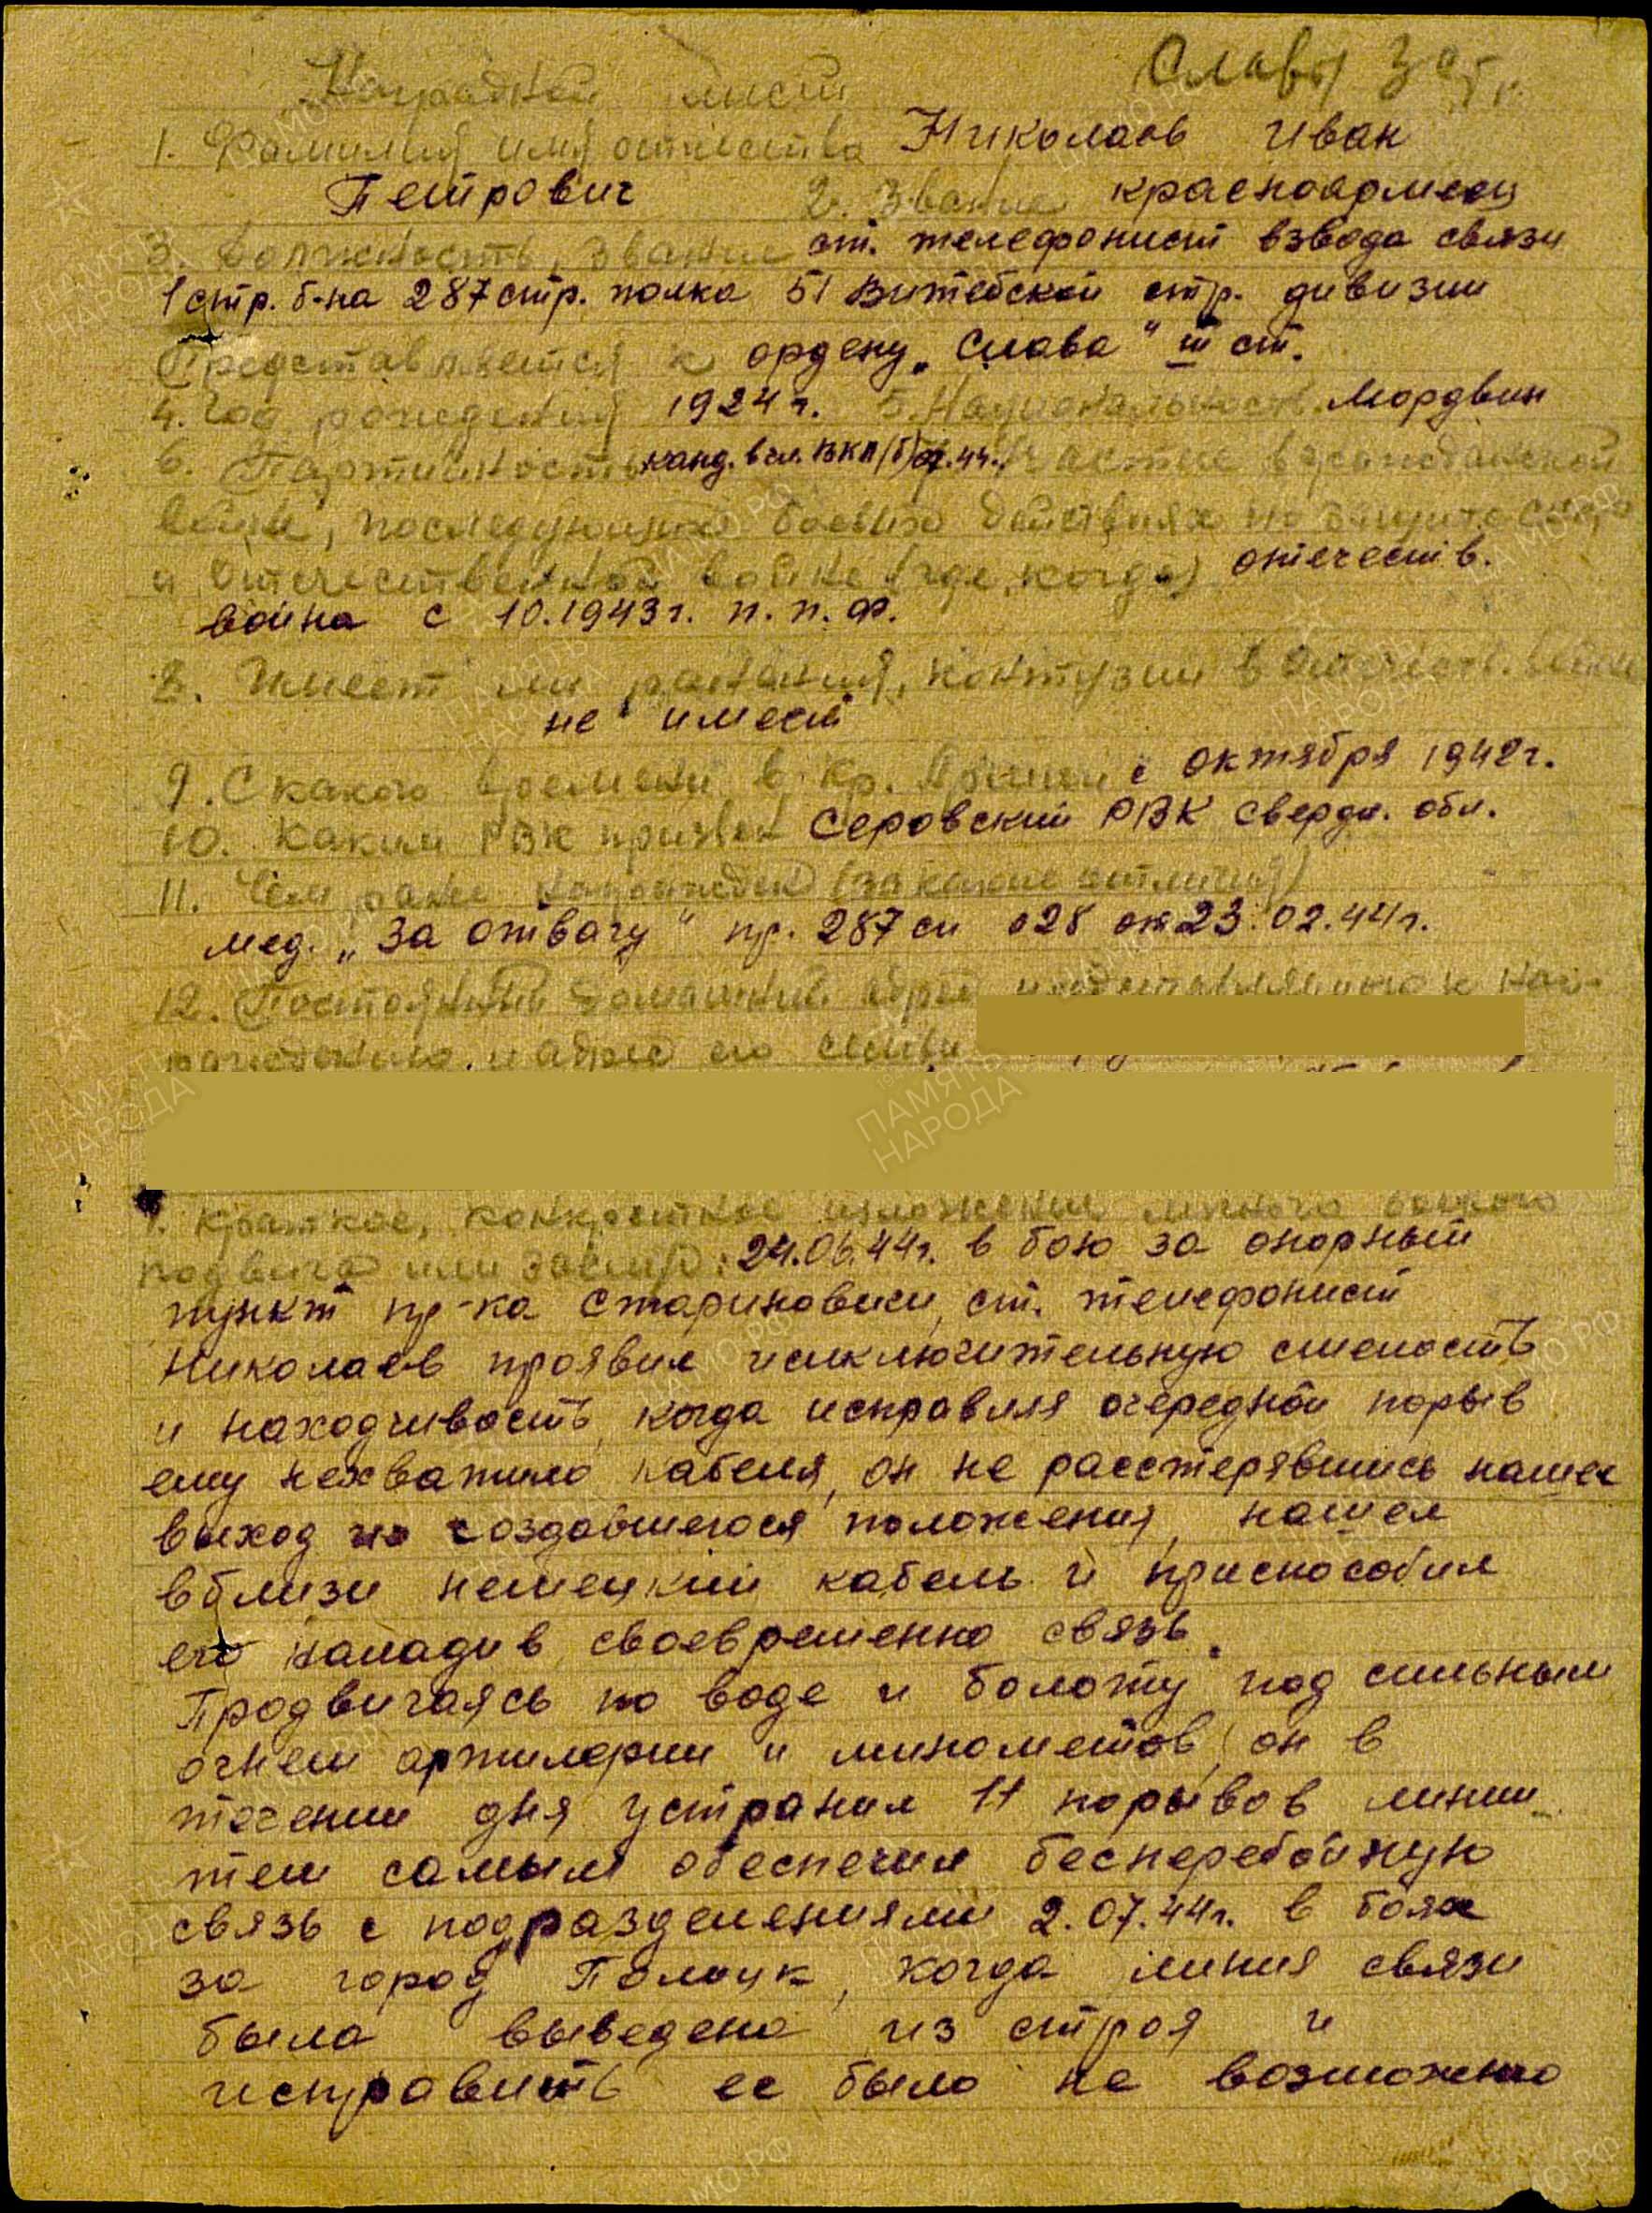 Славы 3 ст.
Наградной лист
1. Фамилия имя отчество Николаев Иван
Петрович 2. Звание красноармеец
3. Должность, звание ст. телефонист взвода связи
1 стр. б-на 287 стр. полка 51 Витебской стр. дивизии
Представляется к ордену „Слава" III ст.
4. Год рождения 1924 г. 5. Национальность Мордвин
6. Партийность канд. в чл. ВКП/б/ с 44. Участие в гражданской
войне, последующих боевых действиях по защите СССР
и отечественной войне (где, когда) отечеств.
война с 10.1943 г. п. п. ф.
8. Имеет ли ранения, контузии в отечеств. войне
не имеет
9. С какого времени в Кр. Армии с октября 1942 г.
10. Каким РВК призван Серовский РВК Свердл. обл.
11. Чем ранее награжден (за какие отличия)
мед. „За отвагу" пр. 287 сп 028 от 23.02.44 г.
12. Постоянный домашний адрес представляемого к наг-
раждению и адрес его семьи
1. Краткое, конкретное изложение личного боевого
подвига или заслуг: 24.06.44 г. в бою за опорный
пункт пр-ка Стариновичи, ст. телефонист
Николаев проявил исключительную смелость
и находчивость, когда исправляя очередной порыв
ему нехватило кабеля, он не расстерявшись нашел
выход из создавшегося положения, нашел
вблизи немецкий кабель и приспособил
его наладив своевременно связь.
Продвигаясь по воде и болоту под сильным
огнем артилерии и минометов, он в
течении дня устранил 11 порывов линии
тем самым обеспечил бесперебойную
связь с подразделениями 2.07.44 г. в боях
за город Полоцк, когда линия связи
была выведена из строя и
исправить ее было не возможно
ПАМЯТЬ НАРОДА
ЦАМО РФ